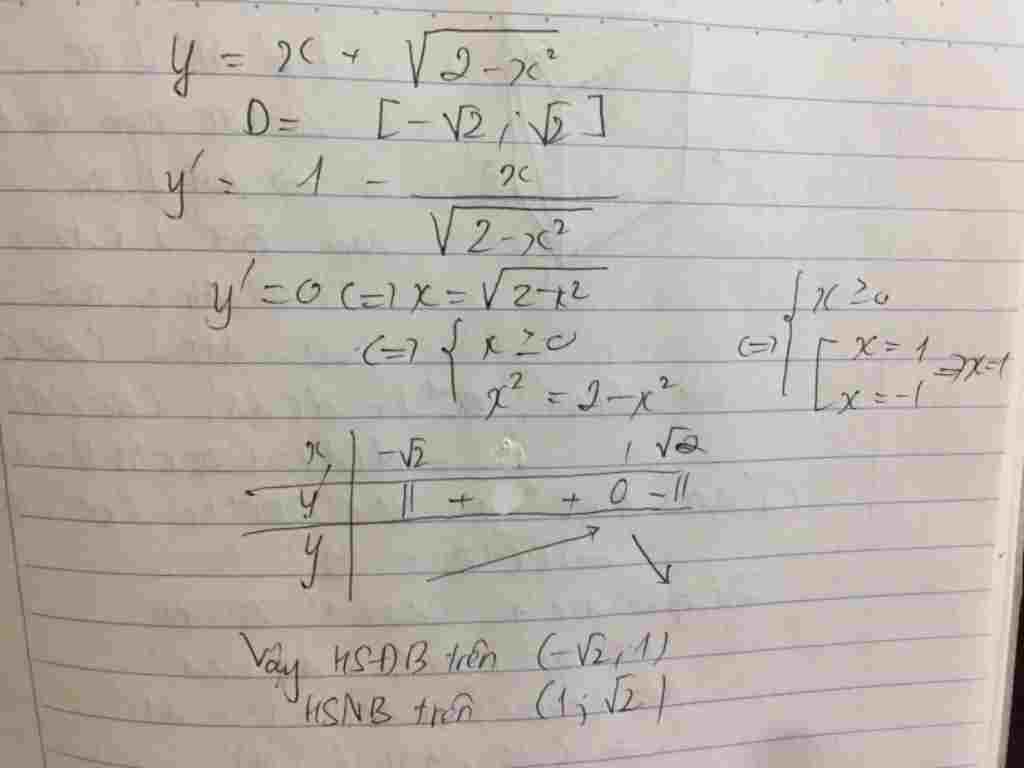 y = x + √(2-x²)
D = [-√2 ; √2]
y' = 1 - x/√(2-x²)
y' = 0 (=) x = √(2-x²)
(=) { x ≥ 0
x² = 2-x²
(=) { x ≥ 0
[ x = 1
x = -1
=> x=1
x | -√2 1 √2
y' | || + + 0 - ||
y | ↗ ↘
Vậy HSĐB trên (-√2, 1)
HSNB trên (1; √2)